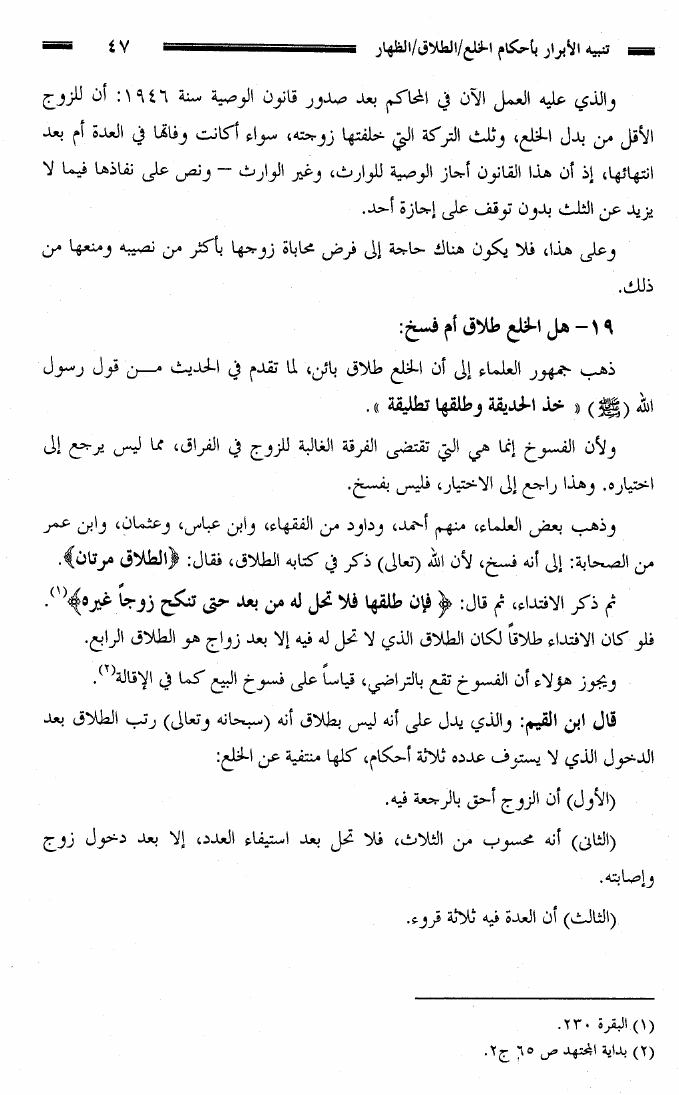 تنبيه الأبرار بأحكام الخلع/الطلاق/الظهار ٤٧
والذي عليه العمل الآن في المحاكم بعد صدور قانون الوصية سنة ١٩٤٦: أن للزوج
الأقل من بدل الخلع، وثلث التركة التي خلفتها زوجته، سواء أكانت وفاتها في العدة أم بعد
انتهائها، إذ أن هذا القانون أجاز الوصية للوارث، وغير الوارث – ونص على نفاذها فيما لا
يزيد عن الثلث بدون توقف على إجازة أحد.
وعلى هذا، فلا يكون هناك حاجة إلى فرض محاباة زوجها بأكثر من نصيبه ومنعها من
ذلك.
١٩- هل الخلع طلاق أم فسخ:
ذهب جمهور العلماء إلى أن الخلع طلاق بائن، لما تقدم في الحديث مــن قول رسول
الله (ﷺ) « خذ الحديقة وطلقها تطليقة ».
ولأن الفسوخ إنما هي التي تقتضى الفرقة الغالبة للزوج في الفراق، مما ليس يرجع إلى
اختياره. وهذا راجع إلى الاختيار، فليس بفسخ.
وذهب بعض العلماء، منهم أحمد، وداود من الفقهاء، وابن عباس، وعثمان، وابن عمر
من الصحابة: إلى أنه فسخ، لأن الله (تعالى) ذكر في كتابه الطلاق، فقال: ﴿الطلاق مرتان﴾.
ثم ذكر الافتداء، ثم قال: ﴿ فإن طلقها فلا تحل له من بعد حتى تنكح زوجاً غيره﴾(١).
فلو كان الافتداء طلاقاً لكان الطلاق الذي لا تحل له فيه إلا بعد زواج هو الطلاق الرابع.
ويجوز هؤلاء أن الفسوخ تقع بالتراضي، قياساً على فسوخ البيع كما في الإقالة(٢).
قال ابن القيم: والذي يدل على أنه ليس بطلاق أنه (سبحانه وتعالى) رتب الطلاق بعد
الدخول الذي لا يستوف عدده ثلاثة أحكام، كلها منتفية عن الخلع:
(الأول) أن الزوج أحق بالرجعة فيه.
(الثانى) أنه محسوب من الثلاث، فلا تحل بعد استيفاء العدد، إلا بعد دخول زوج
وإصابته.
(الثالث) أن العدة فيه ثلاثة قروء.
(١) البقرة ٢٣٠.
(٢) بداية المجتهد ص ٦٥ ج٢.